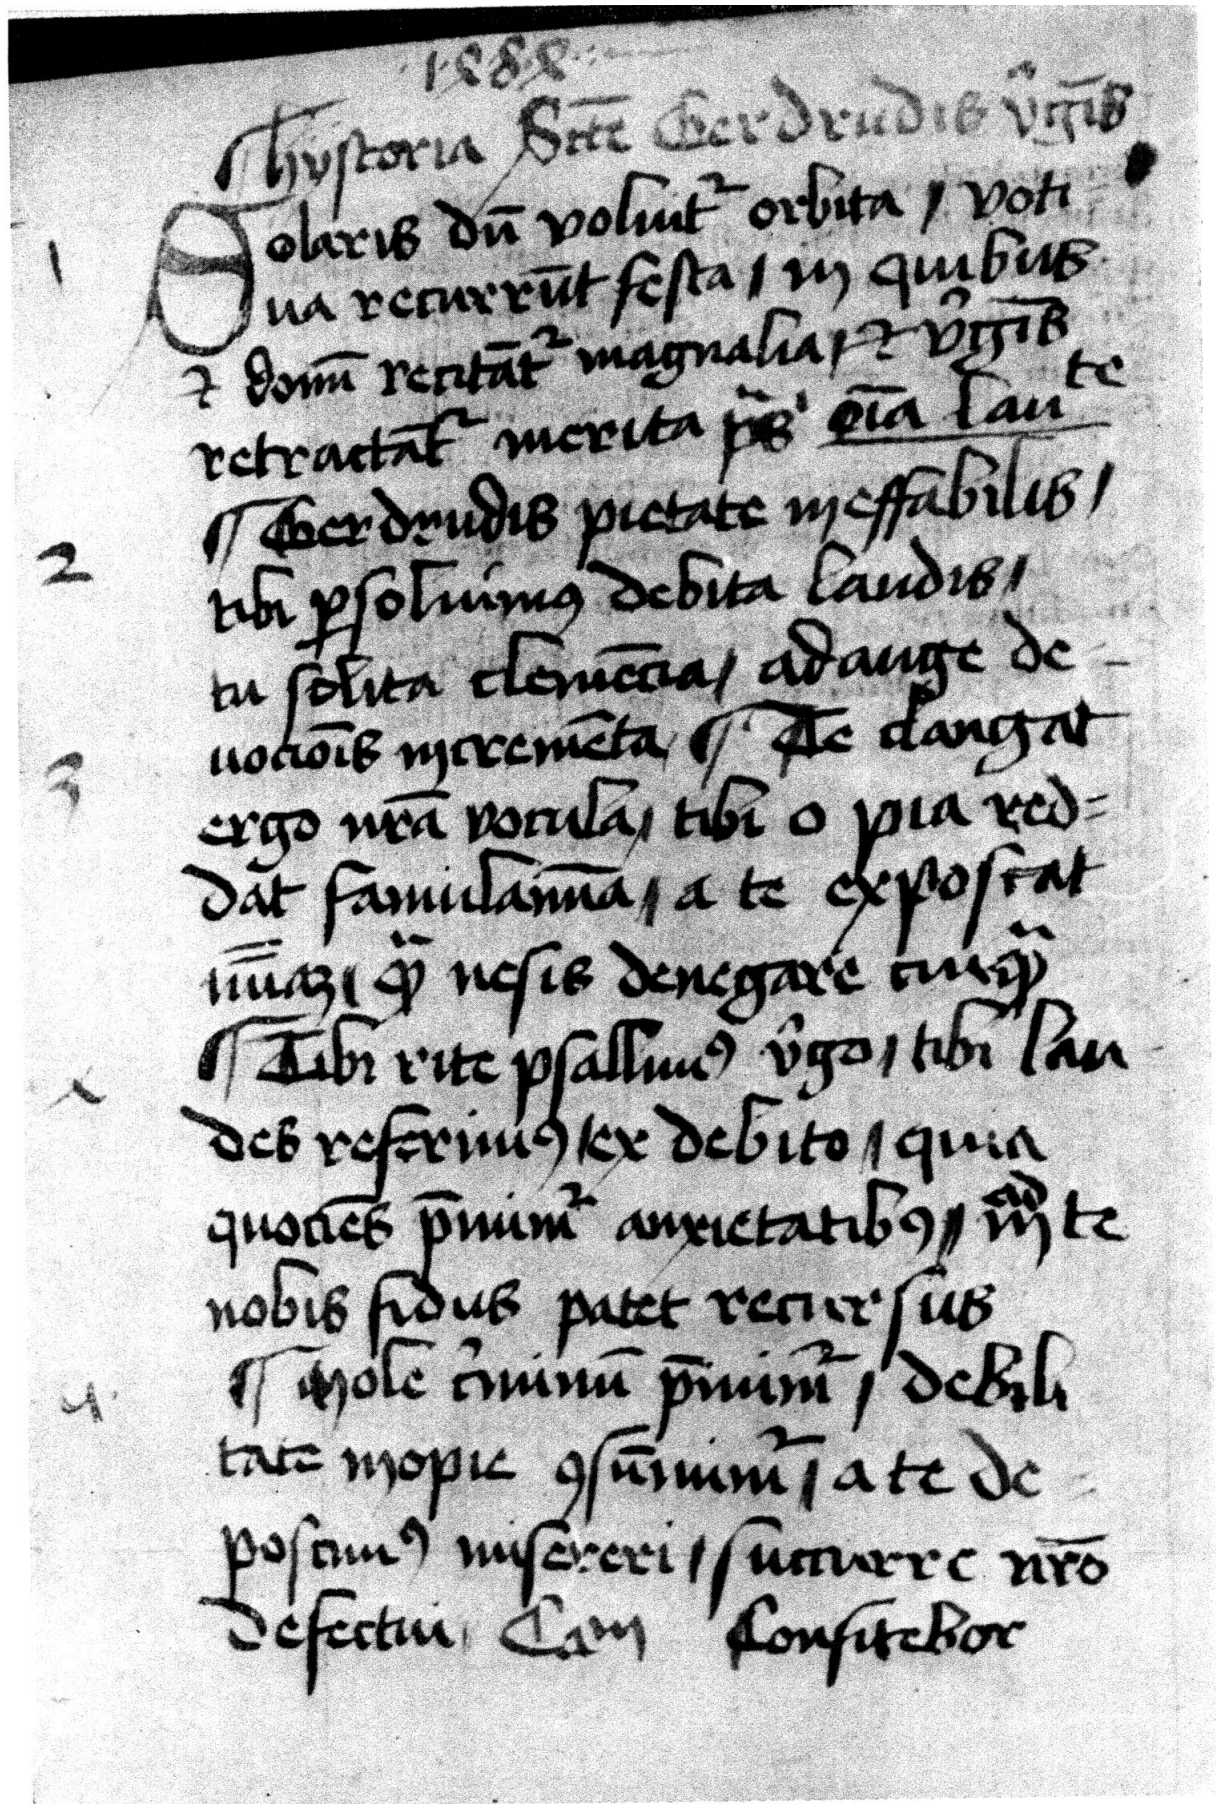 1888
¶ hystoria Scte Gerdrudis v̂gīs
1 Solaris dū voluit᷑ orbita / voti
ua recurrūt festa / in quibus
⁊ domī recitāt᷑ magnalia / ⁊ v̂gīs
retractāt᷑ merita p̄s oīa lau te
2 ¶ Gerdrudis pietate ineffabilis /
tibi ꝑsoluimꝰ debita laudis /
tu solita clemēcia / adauge de-
3 uociōis incremēta / ¶ Te clangat
ergo nr̄a vocula / tibi o pia red=
dat famulamīa / a te exposcat
nesis denegare
x ¶ Tibi rite psallimꝰ v̂go / tibi lau
des referimꝰ / ex debito / quia
quociēs p̄mim᷑ anxietatibꝰ / ad te
nobis fidus patet recursus
4 ¶ Mole c̓minū p̄mim᷑ / debili
tate inopie ꝯsūmim᷑ / a te de-
poscimꝰ misereri / succurre nr̄o
defectui / Cam Confitebor